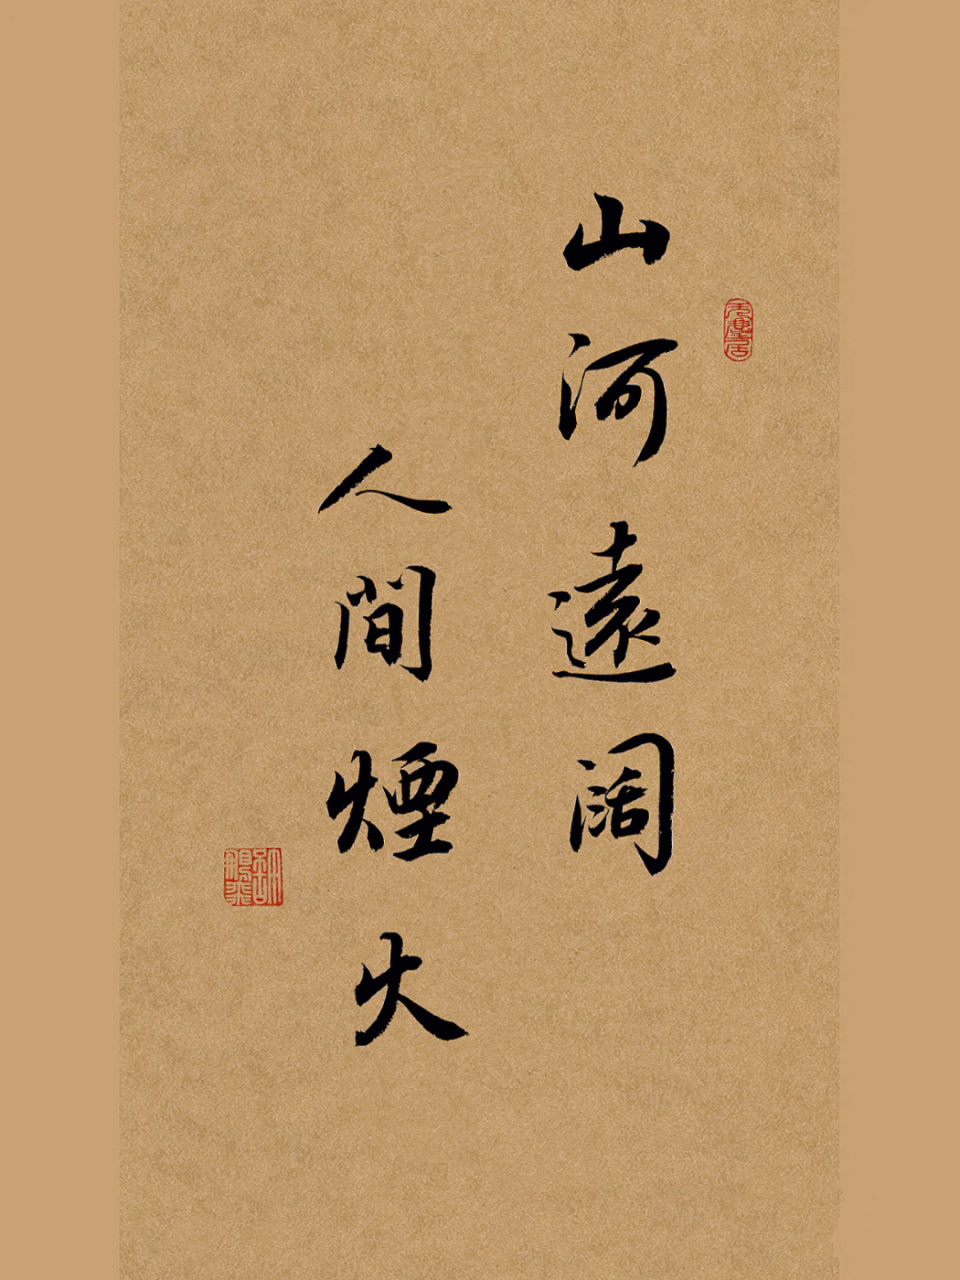 山河遠阔
人間煙火